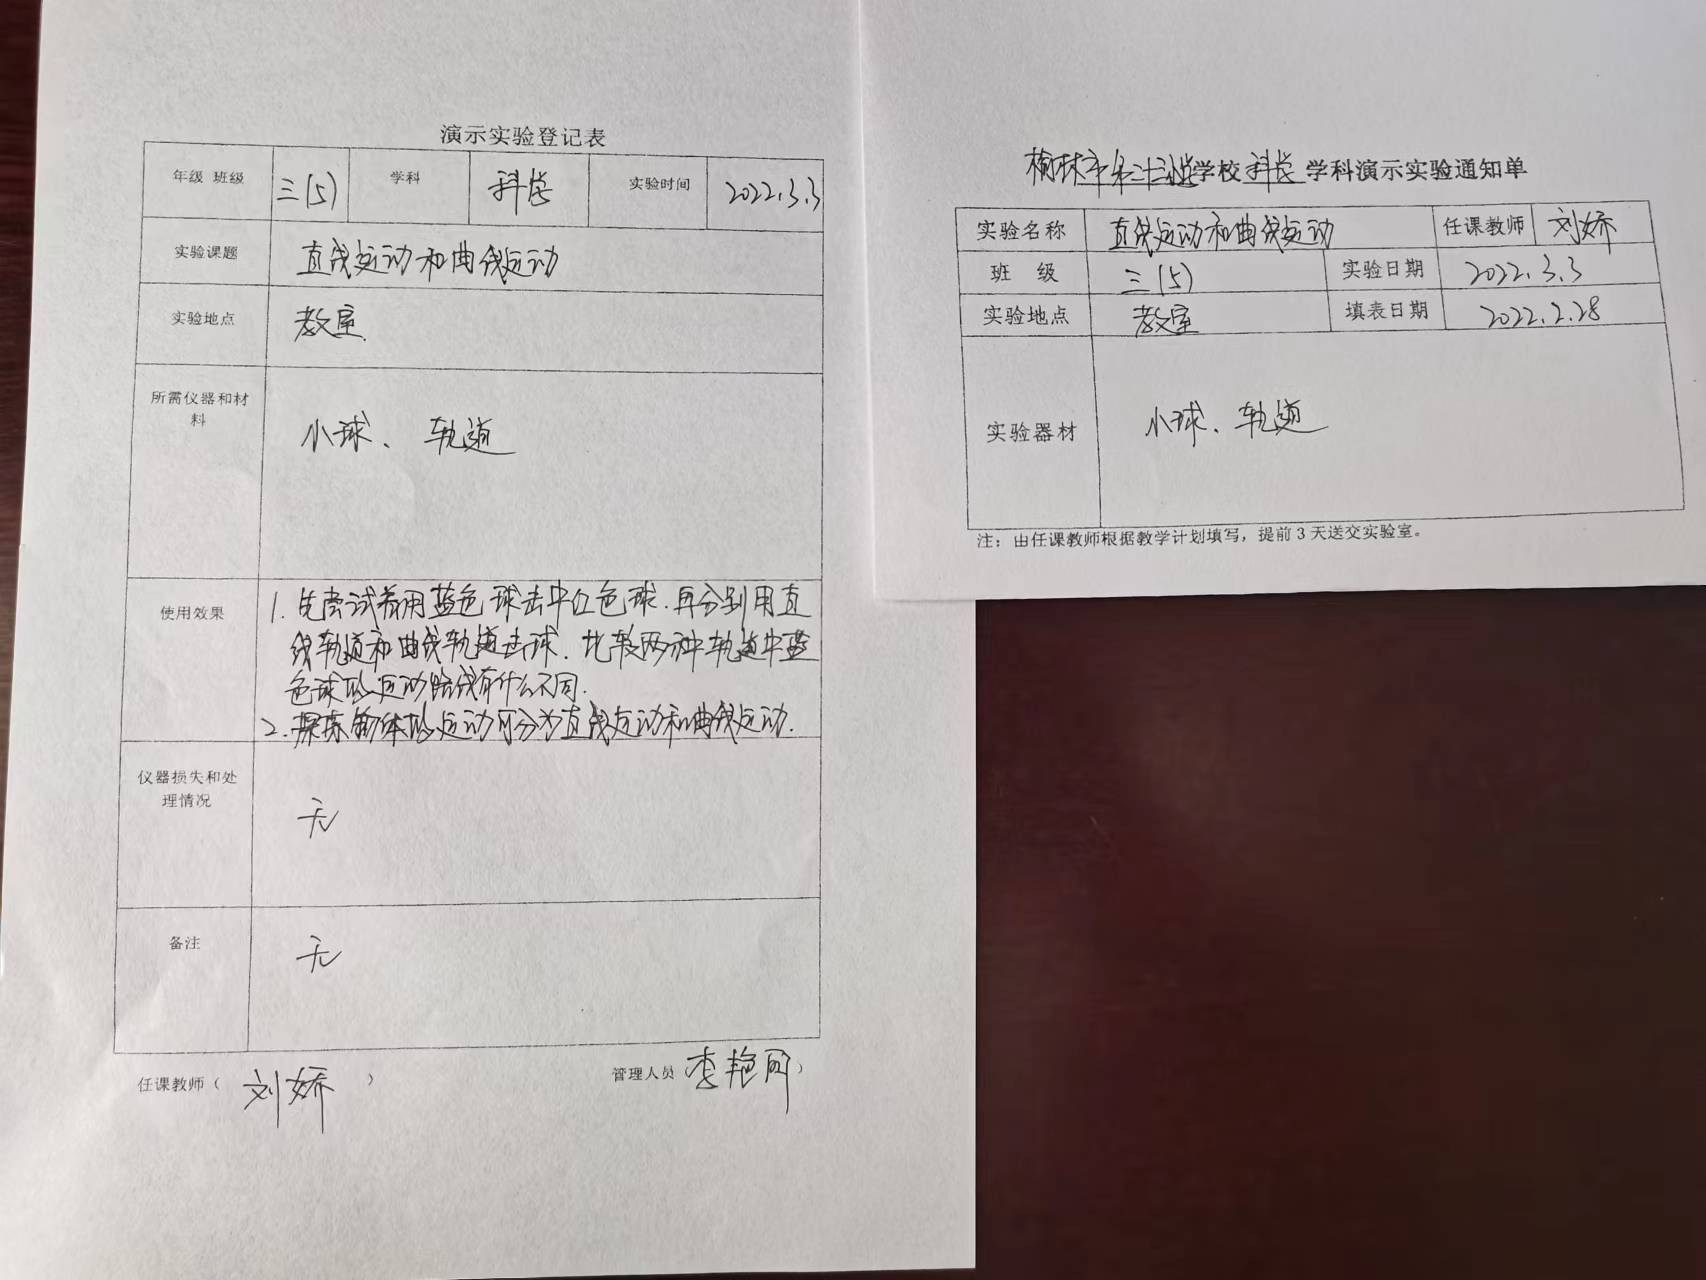 演示实验登记表
年级 班级 三(5) 学科 科学 实验时间 2022.3.3
实验课题 直线运动和曲线运动
实验地点 教室
所需仪器和材
料
小球、轨道
使用效果
1. 先尝试着用蓝色球击中红色球.再分别用直
线轨道和曲线轨道击球.比较两种轨道中蓝
色球的运动路线有什么不同.
2. 探索物体的运动可分为直线运动和曲线运动.
仪器损失和处
理情况
无
备注 无
任课教师( 刘娇 ) 管理人员(李艳 )
榆林市第二十三小学学校科学学科演示实验通知单
实验名称 直线运动和曲线运动 任课教师 刘娇
班 级 三(5) 实验日期 2022.3.3
实验地点 教室 填表日期 2022.2.28
实验器材 小球、轨道
注:由任课教师根据教学计划填写,提前3天送交实验室。